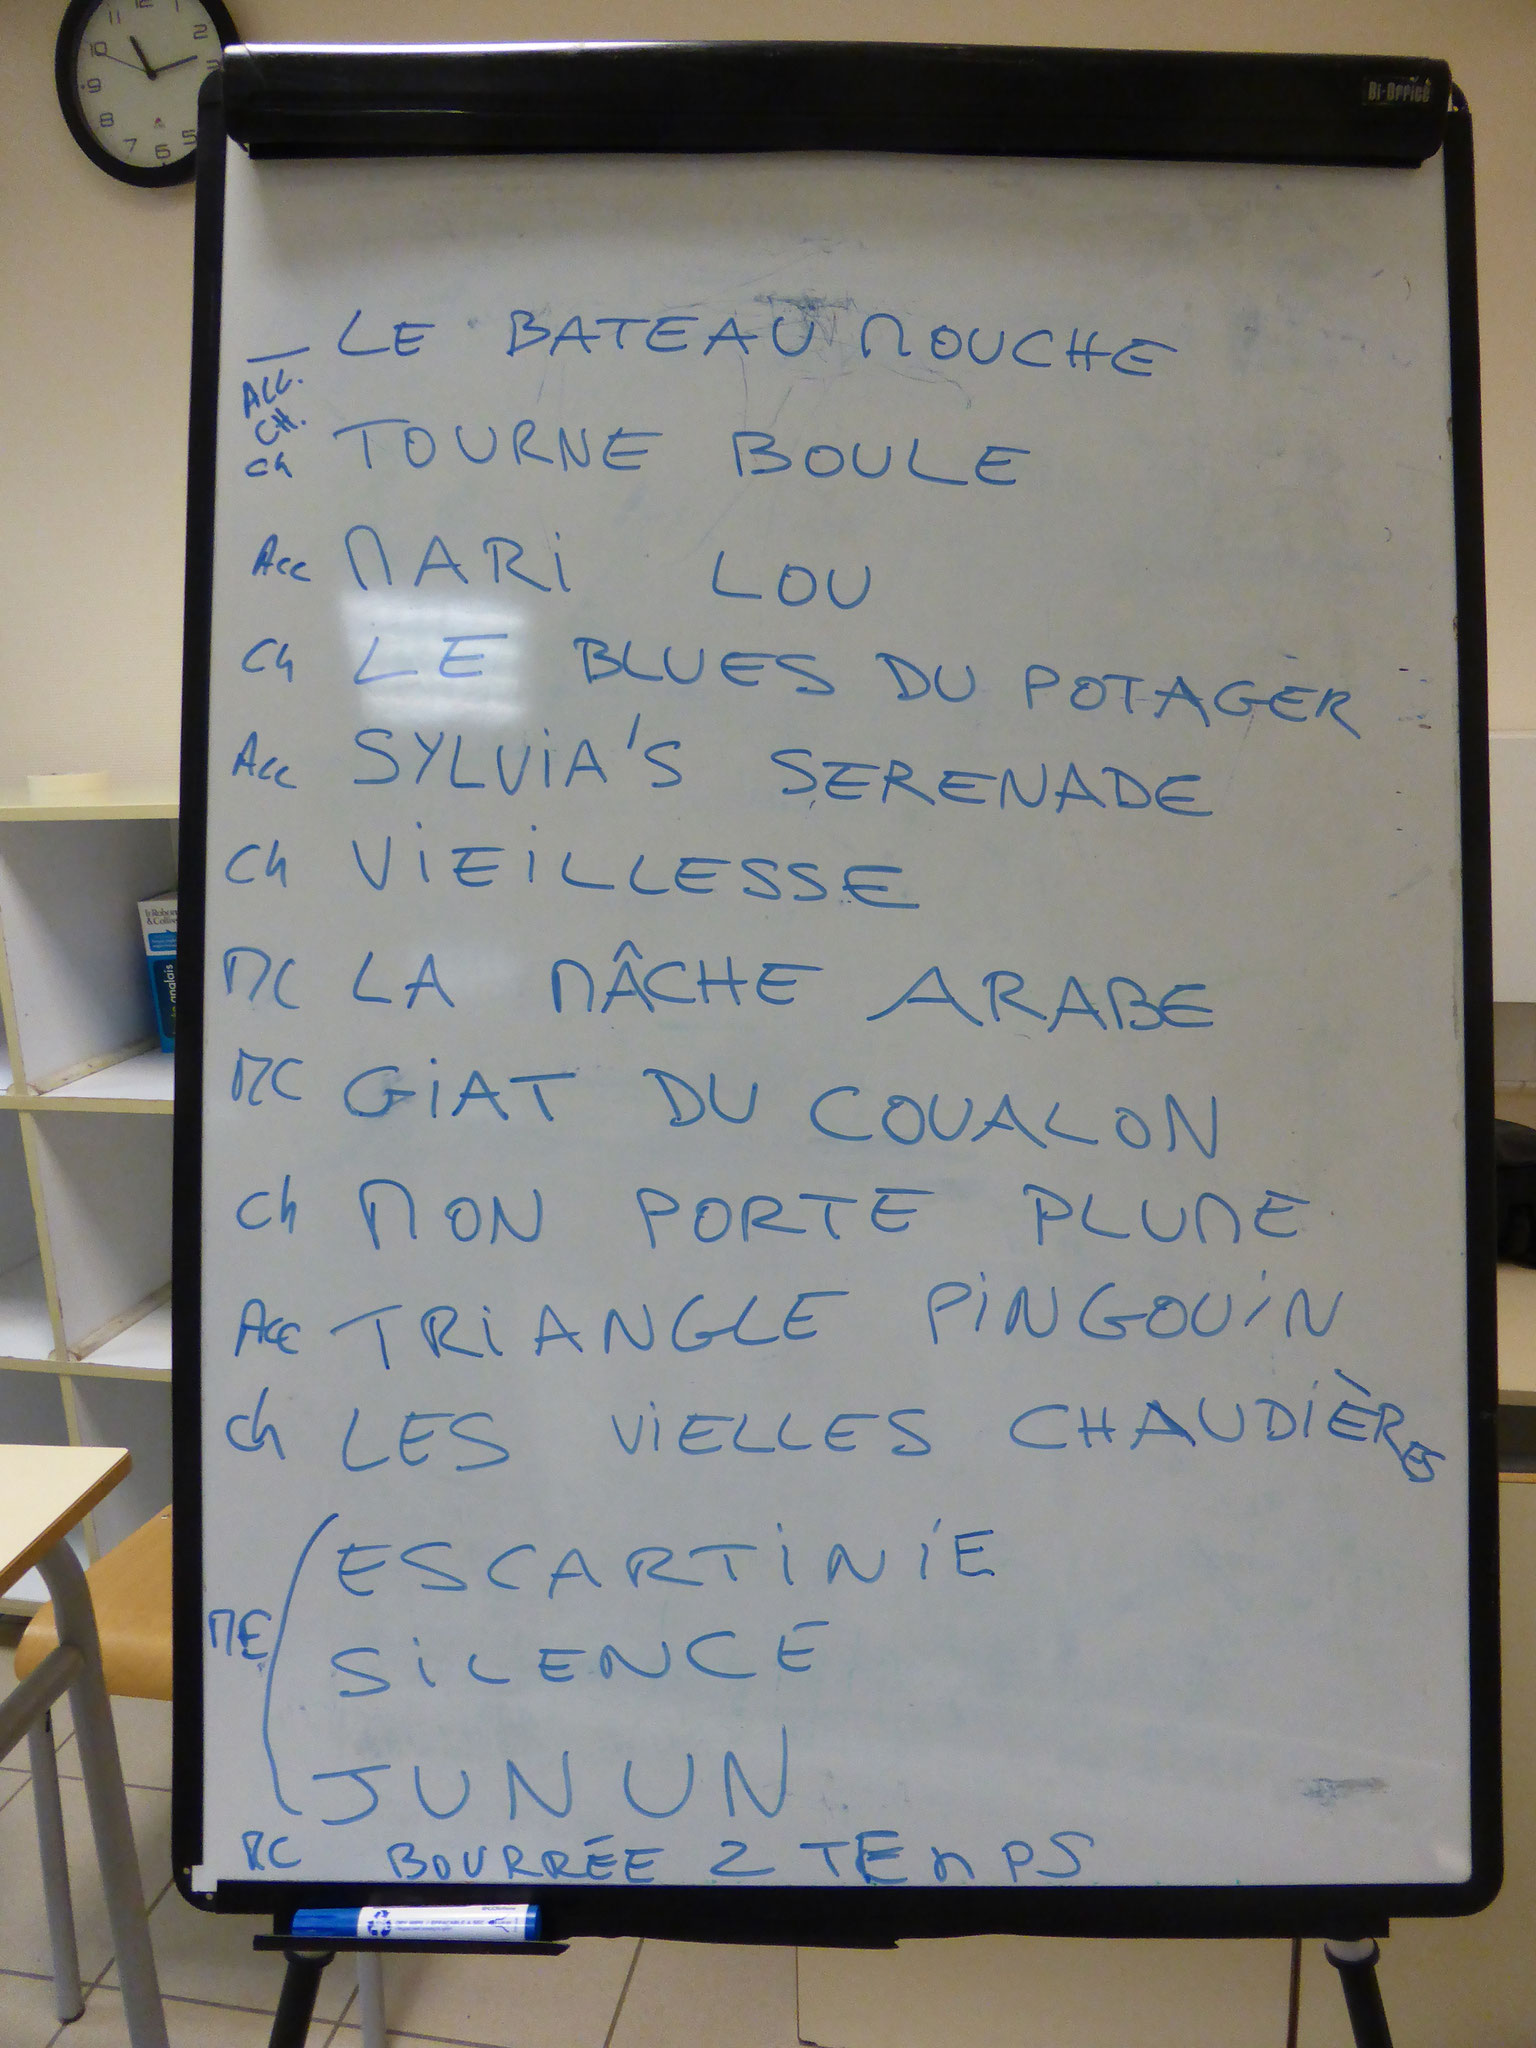 11 12
10 2
9 3
8
7 6 5
Bi-Office
— LE BATEAU MOUCHE
ALL.
CH.
Ch TOURNE BOULE
Acc MARi LOU
Ch LE BLUES DU POTAGER
Acc SYLViA'S SERENADE
Ch ViEiLLESSE
MC LA MÂCHE ARABE
MC GiAT DU COUALON
Ch MON PORTE PLUME
Acc TRiANGLE PiNGOUiN
Ch LES ViELLES CHAUDiÈRES
ESCARTiNiE
ME SiLENCE
JUNUN
MC BOURRÉE 2 TEmPS
le Robert
& Collins
anglais